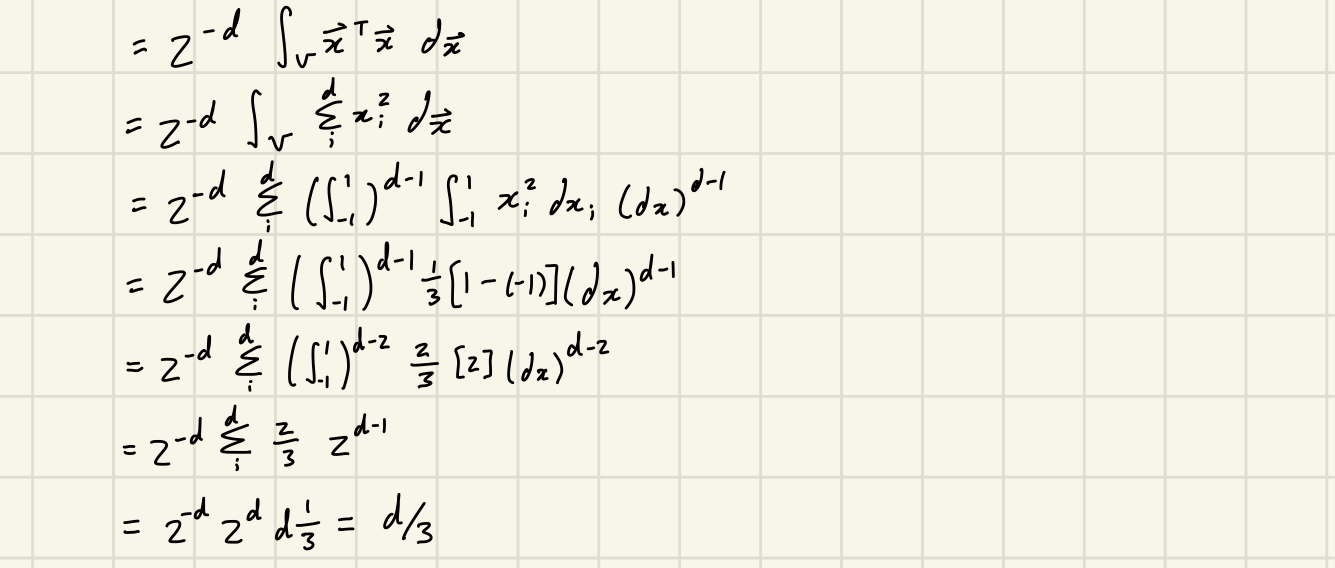 = 2^{-d} ∫_V x⃗^T x⃗ dx⃗
= 2^{-d} ∫_V Σ_i^d x_i^2 dx⃗
= 2^{-d} Σ_i^d (∫_{-1}^1)^{d-1} ∫_{-1}^1 x_i^2 dx_i (dx)^{d-1}
= 2^{-d} Σ_i^d (∫_{-1}^1)^{d-1} 1/3 [1-(-1)] (dx)^{d-1}
= 2^{-d} Σ_i^d (∫_{-1}^1)^{d-2} 2/3 [2] (dx)^{d-2}
= 2^{-d} Σ_i^d 2/3 2^{d-1}
= 2^{-d} 2^d d 1/3 = d/3